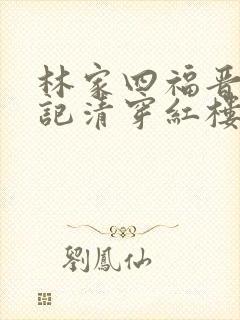 林家四福晋
記清穿紅樓
劉鳳仙